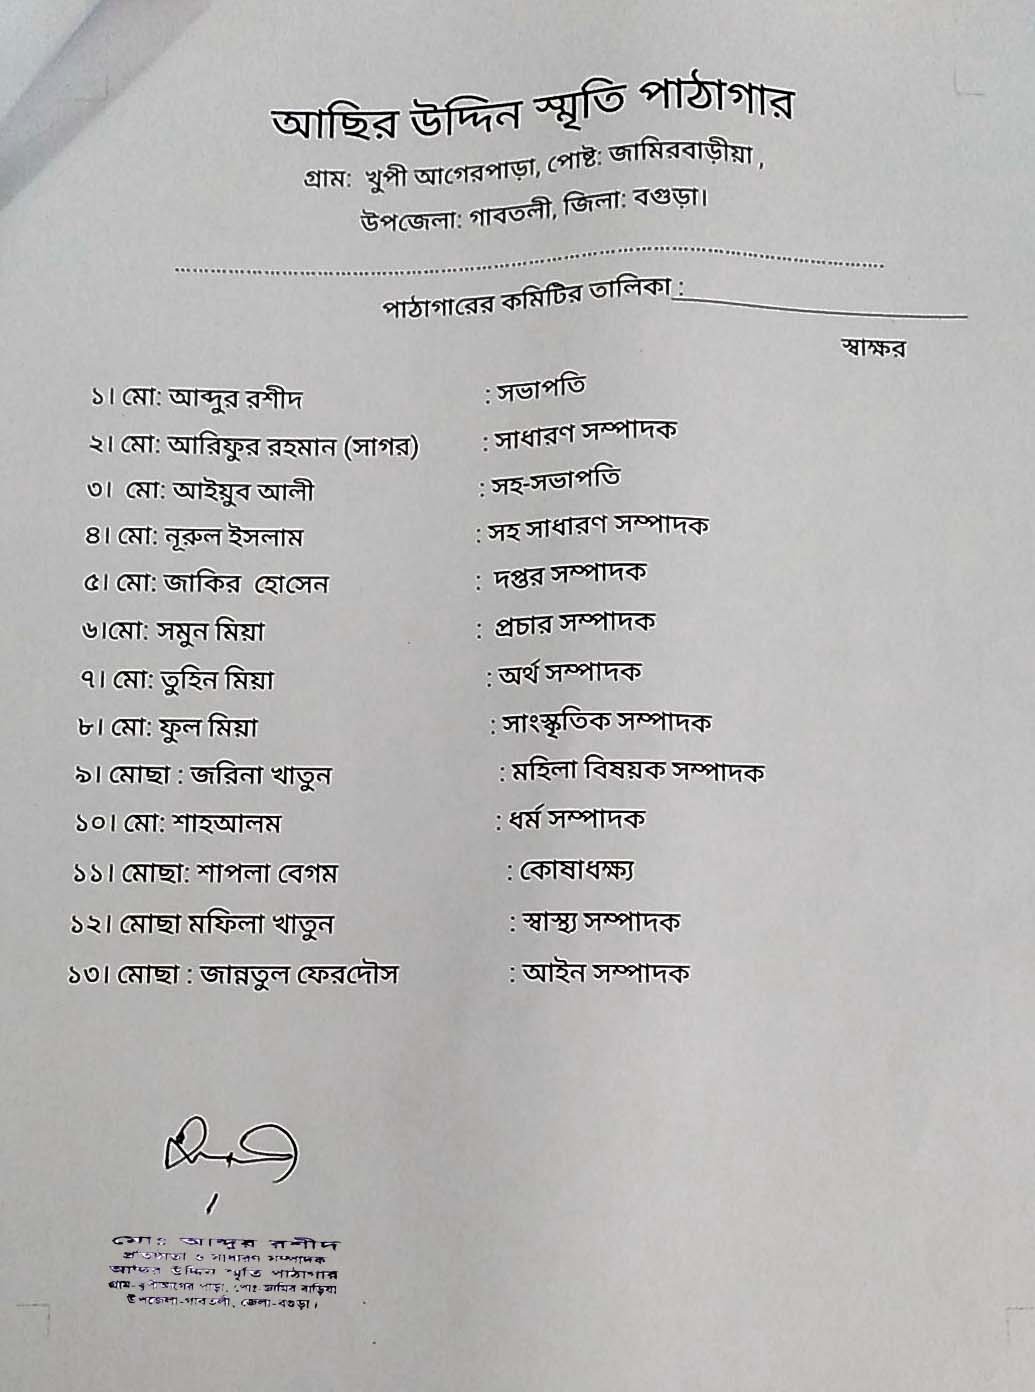 আছির উদ্দিন স্মৃতি পাঠাগার
গ্রাম: খুপী আগেরপাড়া, পোষ্ট: জামিরবাড়ীয়া ,
উপজেলা: গাবতলী, জিলা: বগুড়া।
পাঠাগারের কমিটির তালিকা :
স্বাক্ষর
১। মো: আব্দুর রশীদ : সভাপতি
২। মো: আরিফুর রহমান (সাগর) : সাধারণ সম্পাদক
৩। মো: আইয়ুব আলী : সহ-সভাপতি
৪। মো: নূরুল ইসলাম : সহ সাধারণ সম্পাদক
৫। মো: জাকির হোসেন : দপ্তর সম্পাদক
৬।মো: সমুন মিয়া : প্রচার সম্পাদক
৭। মো: তুহিন মিয়া : অর্থ সম্পাদক
৮। মো: ফুল মিয়া : সাংস্কৃতিক সম্পাদক
৯। মোছা : জরিনা খাতুন : মহিলা বিষয়ক সম্পাদক
১০। মো: শাহআলম : ধর্ম সম্পাদক
১১। মোছা: শাপলা বেগম : কোষাধক্ষ্য
১২। মোছা মফিলা খাতুন : স্বাস্থ্য সম্পাদক
১৩। মোছা : জান্নতুল ফেরদৌস : আইন সম্পাদক
মোঃ আব্দুর রশীদ
প্রতিষ্ঠাতা ও সাধারন সম্পাদক
আছির উদ্দিন স্মৃতি পাঠাগার
গ্রাম- পাড়া, পোঃ-জামির বাড়িয়া
উপজেলা-গাবতলী, জেলা-বগুড়া।